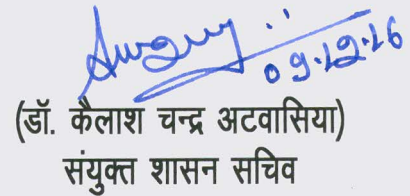 09.12.16
(डॉ. कैलाश चन्द्र अटवासिया)
संयुक्त शासन सचिव